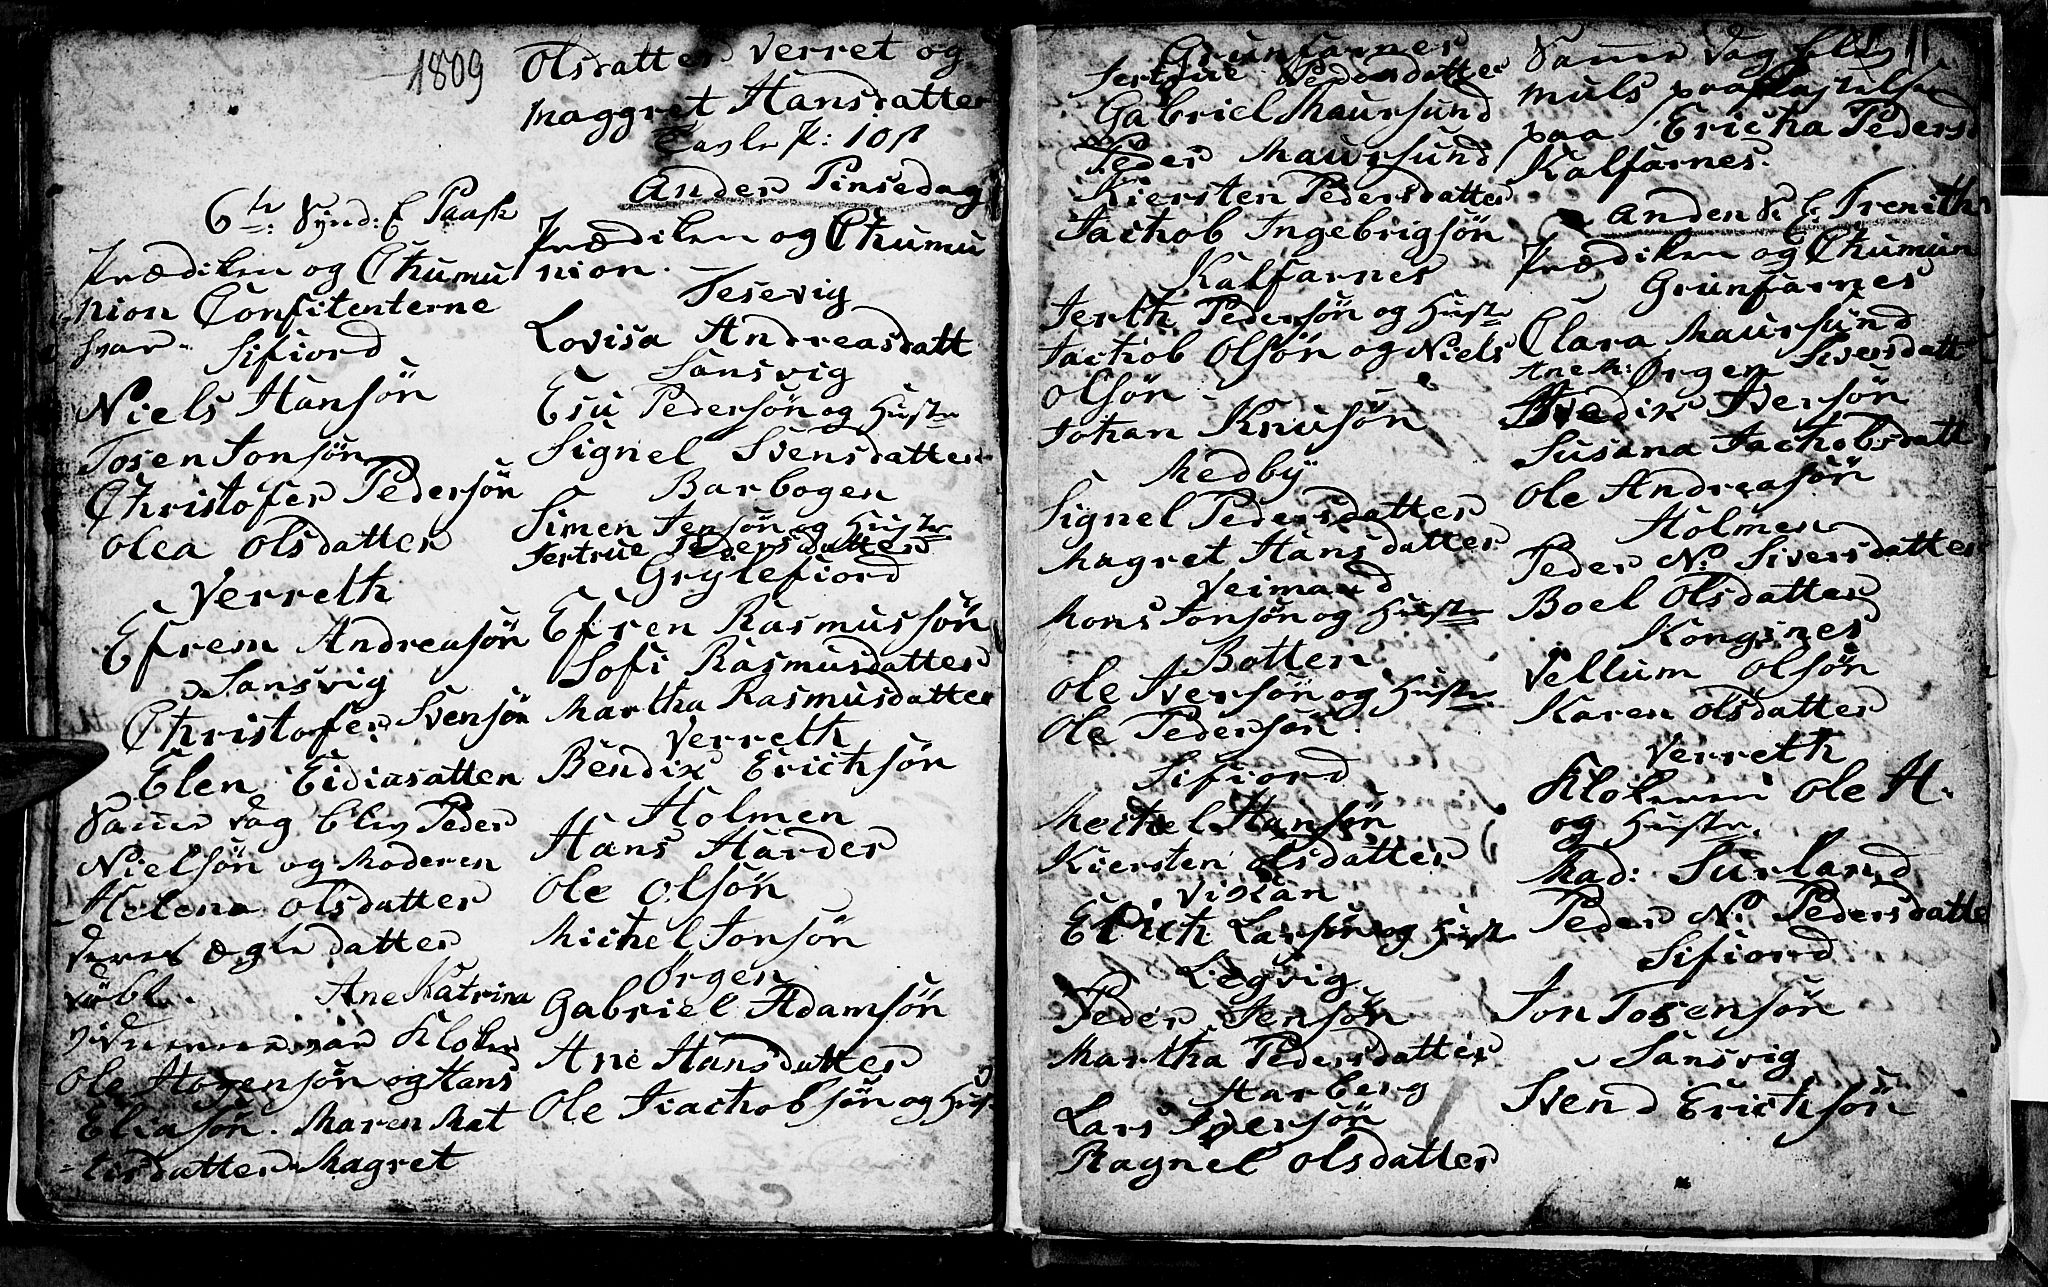 1809
6te Synd: E Paask
Prædiken og Chumu
nion Confitenterne
hvar
Sifiord
Niels Hansøn
Tosen Jonsøn
Christofer Pedersøn
Olea Olsdatter
Verreth
Efrem Andreasøn
Sansvig
Christofer Svensøn
Elen Eidiasatten
Samme dag blev Peder
Nielsøn og Moderen
Helena Olsdatter
deres ægte datter
døbt. Ane Katrina
var Kloker
Ole Hogensøn og Hans
Eliasøn. Maren Mat
tisdatter Magret
Olsdatter Verret og
Maggret Hansdatter
10 s
Anden Pinsedag
Prædiken og Chumu
nion.
Tesevig
Lovisa Andreasdatt
Sansvig
Esu Pedersøn og Hustr
Signel Svensdatter
Barbogen
Simen Jensøn og Hustr
Jertrue Pedersdatter
Grylefiord
Efren Rasmussøn
Sofi Rasmusdatter
Martha Rasmusdatter
Verreth
Bendix Erichsøn
Holmen
Hans Harder
Ole Olsøn
Michel Jonsøn
Ørgen
Gabriel Adamsøn
Ane Hansdatter
Ole Jiachobsøn og Hust
11
Grunfarnes
Jertrue Pedersdatter
Gabriel Maursund
Peder Maursund
Kiersten Pedersdatter
Jachob Ingebrigsøn
Kalfarnes
Jerth Pedersøn og Hustr
Jachob Olsøn og Niels
Olsøn
Johan Knusøn
Medby
Signel Pedersdatter
Magret Hansdatter
Veimand
Mons Jonsøn og Hustr
Botten
Ole Iversøn og Hustr
Ole Pedersøn
Sifiord
Mechel Hansøn
Kiersten Olsdatter
Viskan
Erich Larsøn og Hust
Legvig
Peder Jensøn
Martha Pedersdatter
Harberg
Lars Iversøn
Ragnel Olsdatter
Samme dag blev
Muls
paa Ericha Peders
Kalfarnes.
Anden S. E. Trenith
Prædiken og Chumun
Grunfarnes
Clara Maursund
Ane M: Ørgen Siversdatt
Bredix Iversøn
Susana Jachobsdatt
Ole Andreasøn
Holmen
Peder N: Siversdatter
Boel Olsdatter
Kongsnes
Vellum Olsøn
Karen Olsdatter
Verreth
Ole H.
og Hustr.
Mad: Surland
Peder N: Pedersdatte
Sifiord
Jon Tosensøn
Sansvig
Svend Erichsøn